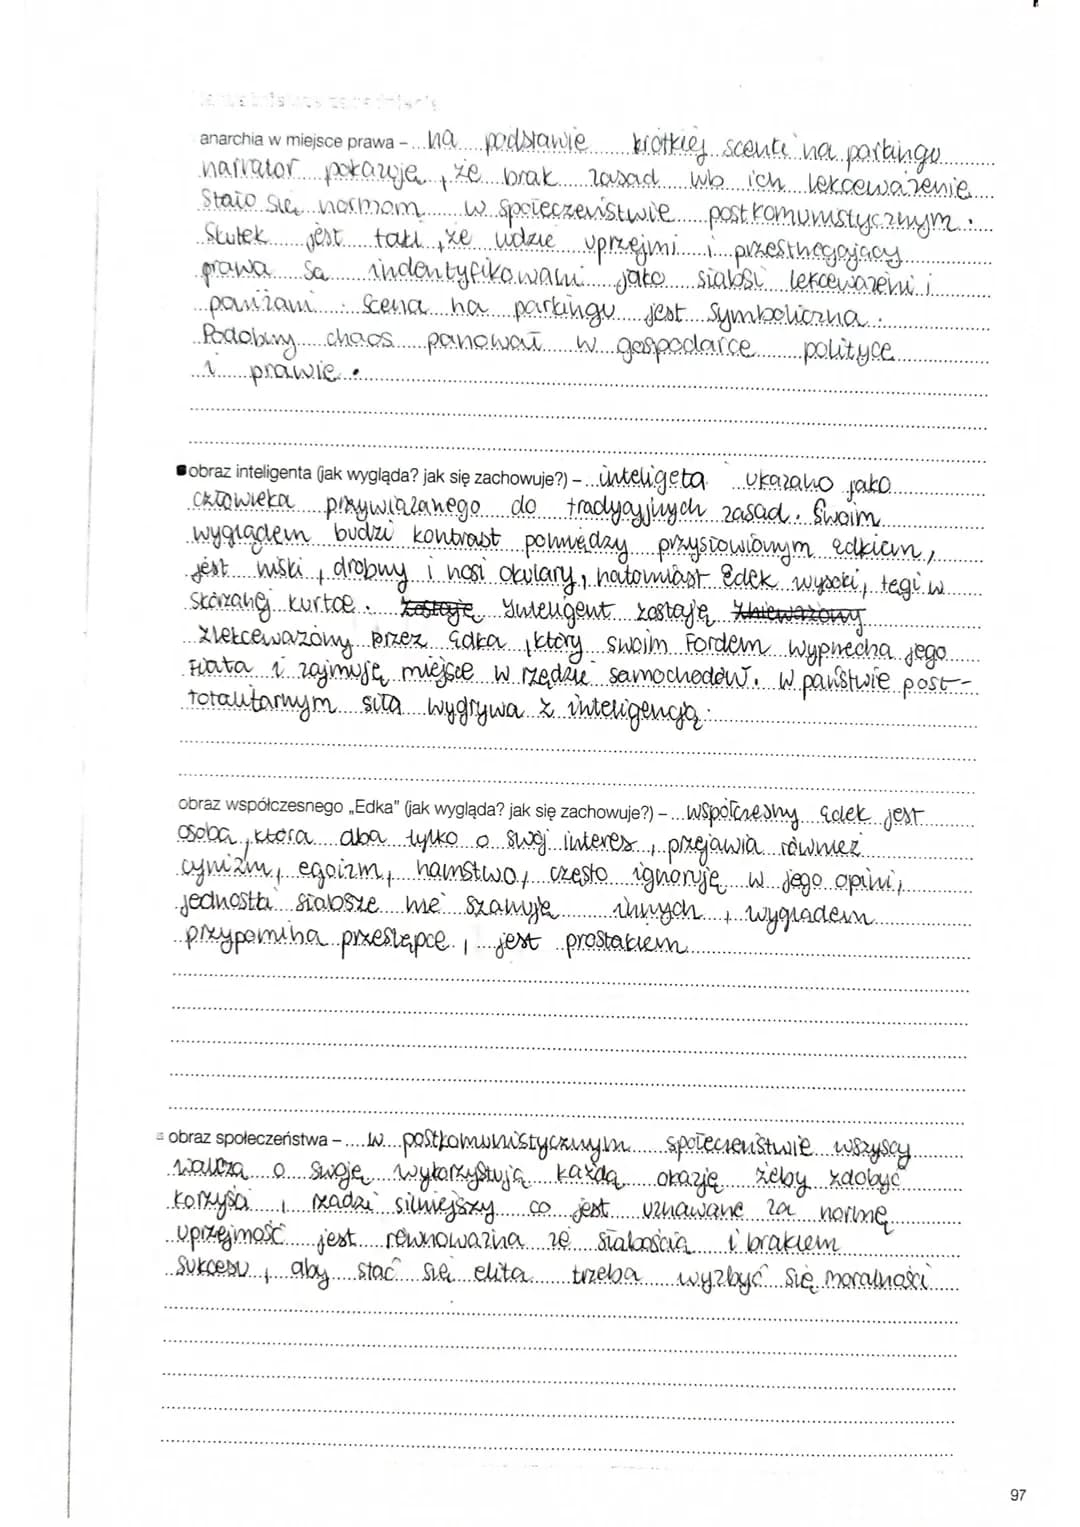 anarchia w miejsce prawa – na podstawie krótkiej scenki na parkingu
narrator pokazuję, że brak zasad lub ich lekceważenie
stało się normom w społeczeństwie postkomunistycznym.
Skutek jest taki, że ludzie uprzejmi i przestrzegający
prawa są indentyfikowani jako słabsi lekceważeni i
poniżani. Scena na parkingu jest symboliczna.
Podobny chaos panował w gospodarce polityce
i prawie.
obraz inteligenta (jak wygląda? jak się zachowuje?) – inteligeta ukazano jako
człowieka przywiązanego do tradycyjnych zasad. Swoim
wyglądem budzi kontrast pomiędzy przysłowionym edkiem,
jest niski, drobny i nosi okulary, natomiast Edek wysoki, tęgi w
skórzanej kurtce. zostaję Inteligent zostaję znieważony
zlekceważony przez Edka, który swoim Fordem wypiecha jego
Fiata i zajmuję miejsce w rzędzie samochodów. W państwie post-
totalitarnym siła wygrywa z inteligencją.
obraz współczesnego „Edka" (jak wygląda? jak się zachowuje?) – współczesny Edek jest
osobą, która dba tylko o swój interes, przejawia również
cynizm, egoizm, hamstwo, często ignoruję w jego opini,
jednostki słabsze nie szanuję innych, wyglądem
przypomina przestępce, jest prostakiem
obraz społeczeństwa – W postkomunistycznym społeczeństwie wszyscy
walczą o swoje wykorzystują każdą okazję żeby zdobyć
korzyści, rządzi silniejszy co jest uznawane za normę
uprzejmość jest równoważna ze słabością i brakiem
sukcesu, aby stać się elitą trzeba wyzbyć się moralności
97